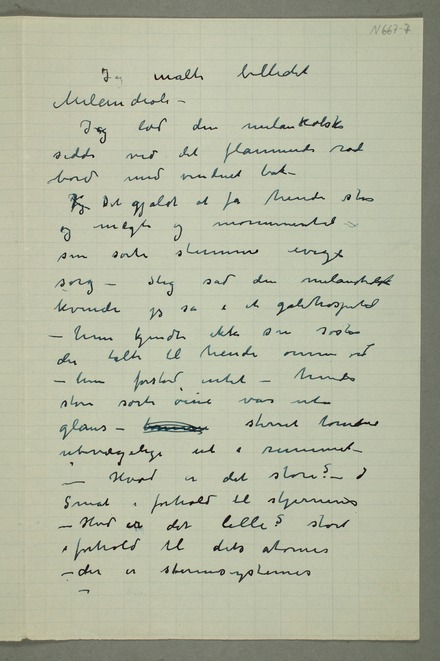 N 667-7
Jeg malte billedet
Melankoli –
Jeg lod den melankolske
sidde ved det flammende røde
bord med vinduet bak –
Det gjaldt at få hende stor
og mægtig og monumental
sin sorte stumme evige
sorg – Slig sad den melankolske
kvinde jeg så i et galehospital
– hun kjendte ikke sin søster
der talte til hende ømme ord
– hun forstod intet – hendes
store sorte øine var uten
glans – stirret tomme
ubevægelige ut i rummet –
– Hvad er det store? –
Smat i forhold til stjernerne
– Hvad er det lille? stort
i forhold til dets atomer
– der er stjernesystemer
–